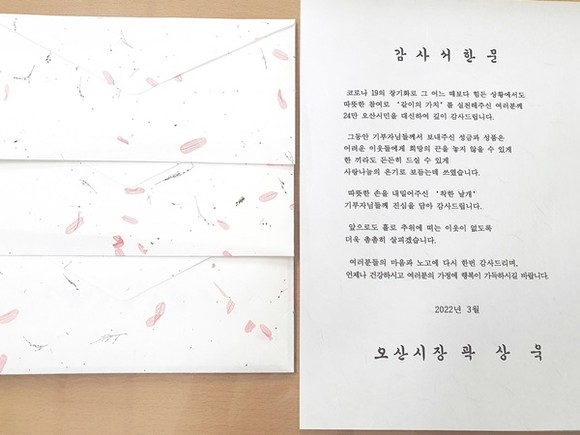 감사서한문
코로나 19의 장기화로 그 어느 때보다 힘든 상황에서도
따뜻한 참여로 '같이의 가치'를 실천해주신 여러분께
24만 오산시민을 대신하여 깊이 감사드립니다.
그동안 기부자님들께서 보내주신 성금과 성품은
어려운 이웃들에게 희망의 끈을 놓지 않을 수 있게
한 끼라도 든든히 드실 수 있게
사랑나눔의 온기로 보듬는데 쓰였습니다.
따뜻한 손을 내밀어주신 '착한 날개'
기부자님들께 진심을 담아 감사드립니다.
앞으로도 홀로 추위에 떠는 이웃이 없도록
더욱 촘촘히 살피겠습니다.
여러분들의 마음과 노고에 다시 한번 감사드리며,
언제나 건강하시고 여러분의 가정에 행복이 가득하시길 바랍니다.
2022년 3월
오산시장 곽 상 욱